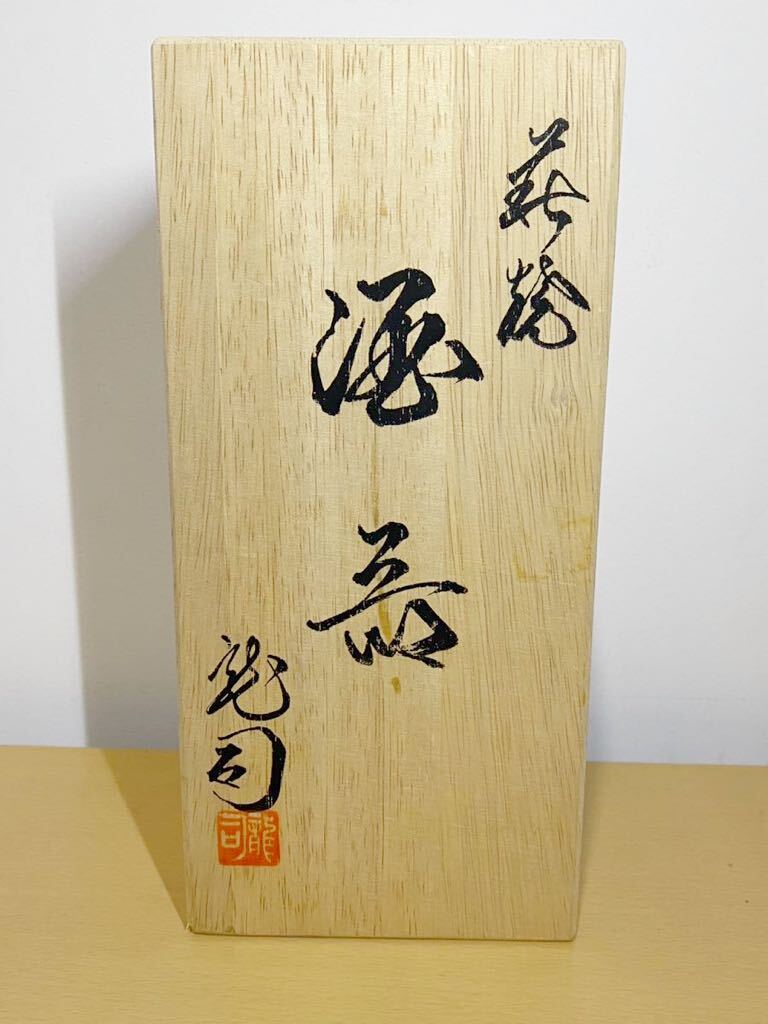 萩焼
酒器
龍司
龍司